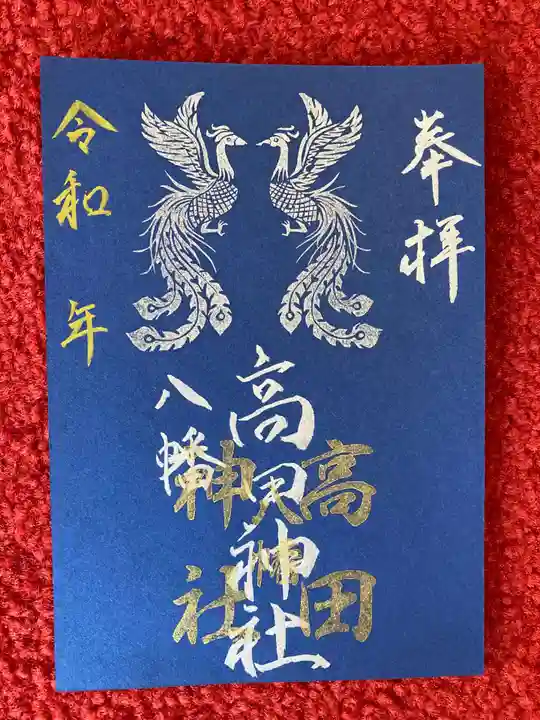 奉拝
高田神社
八幡
高田
神社
令和 年